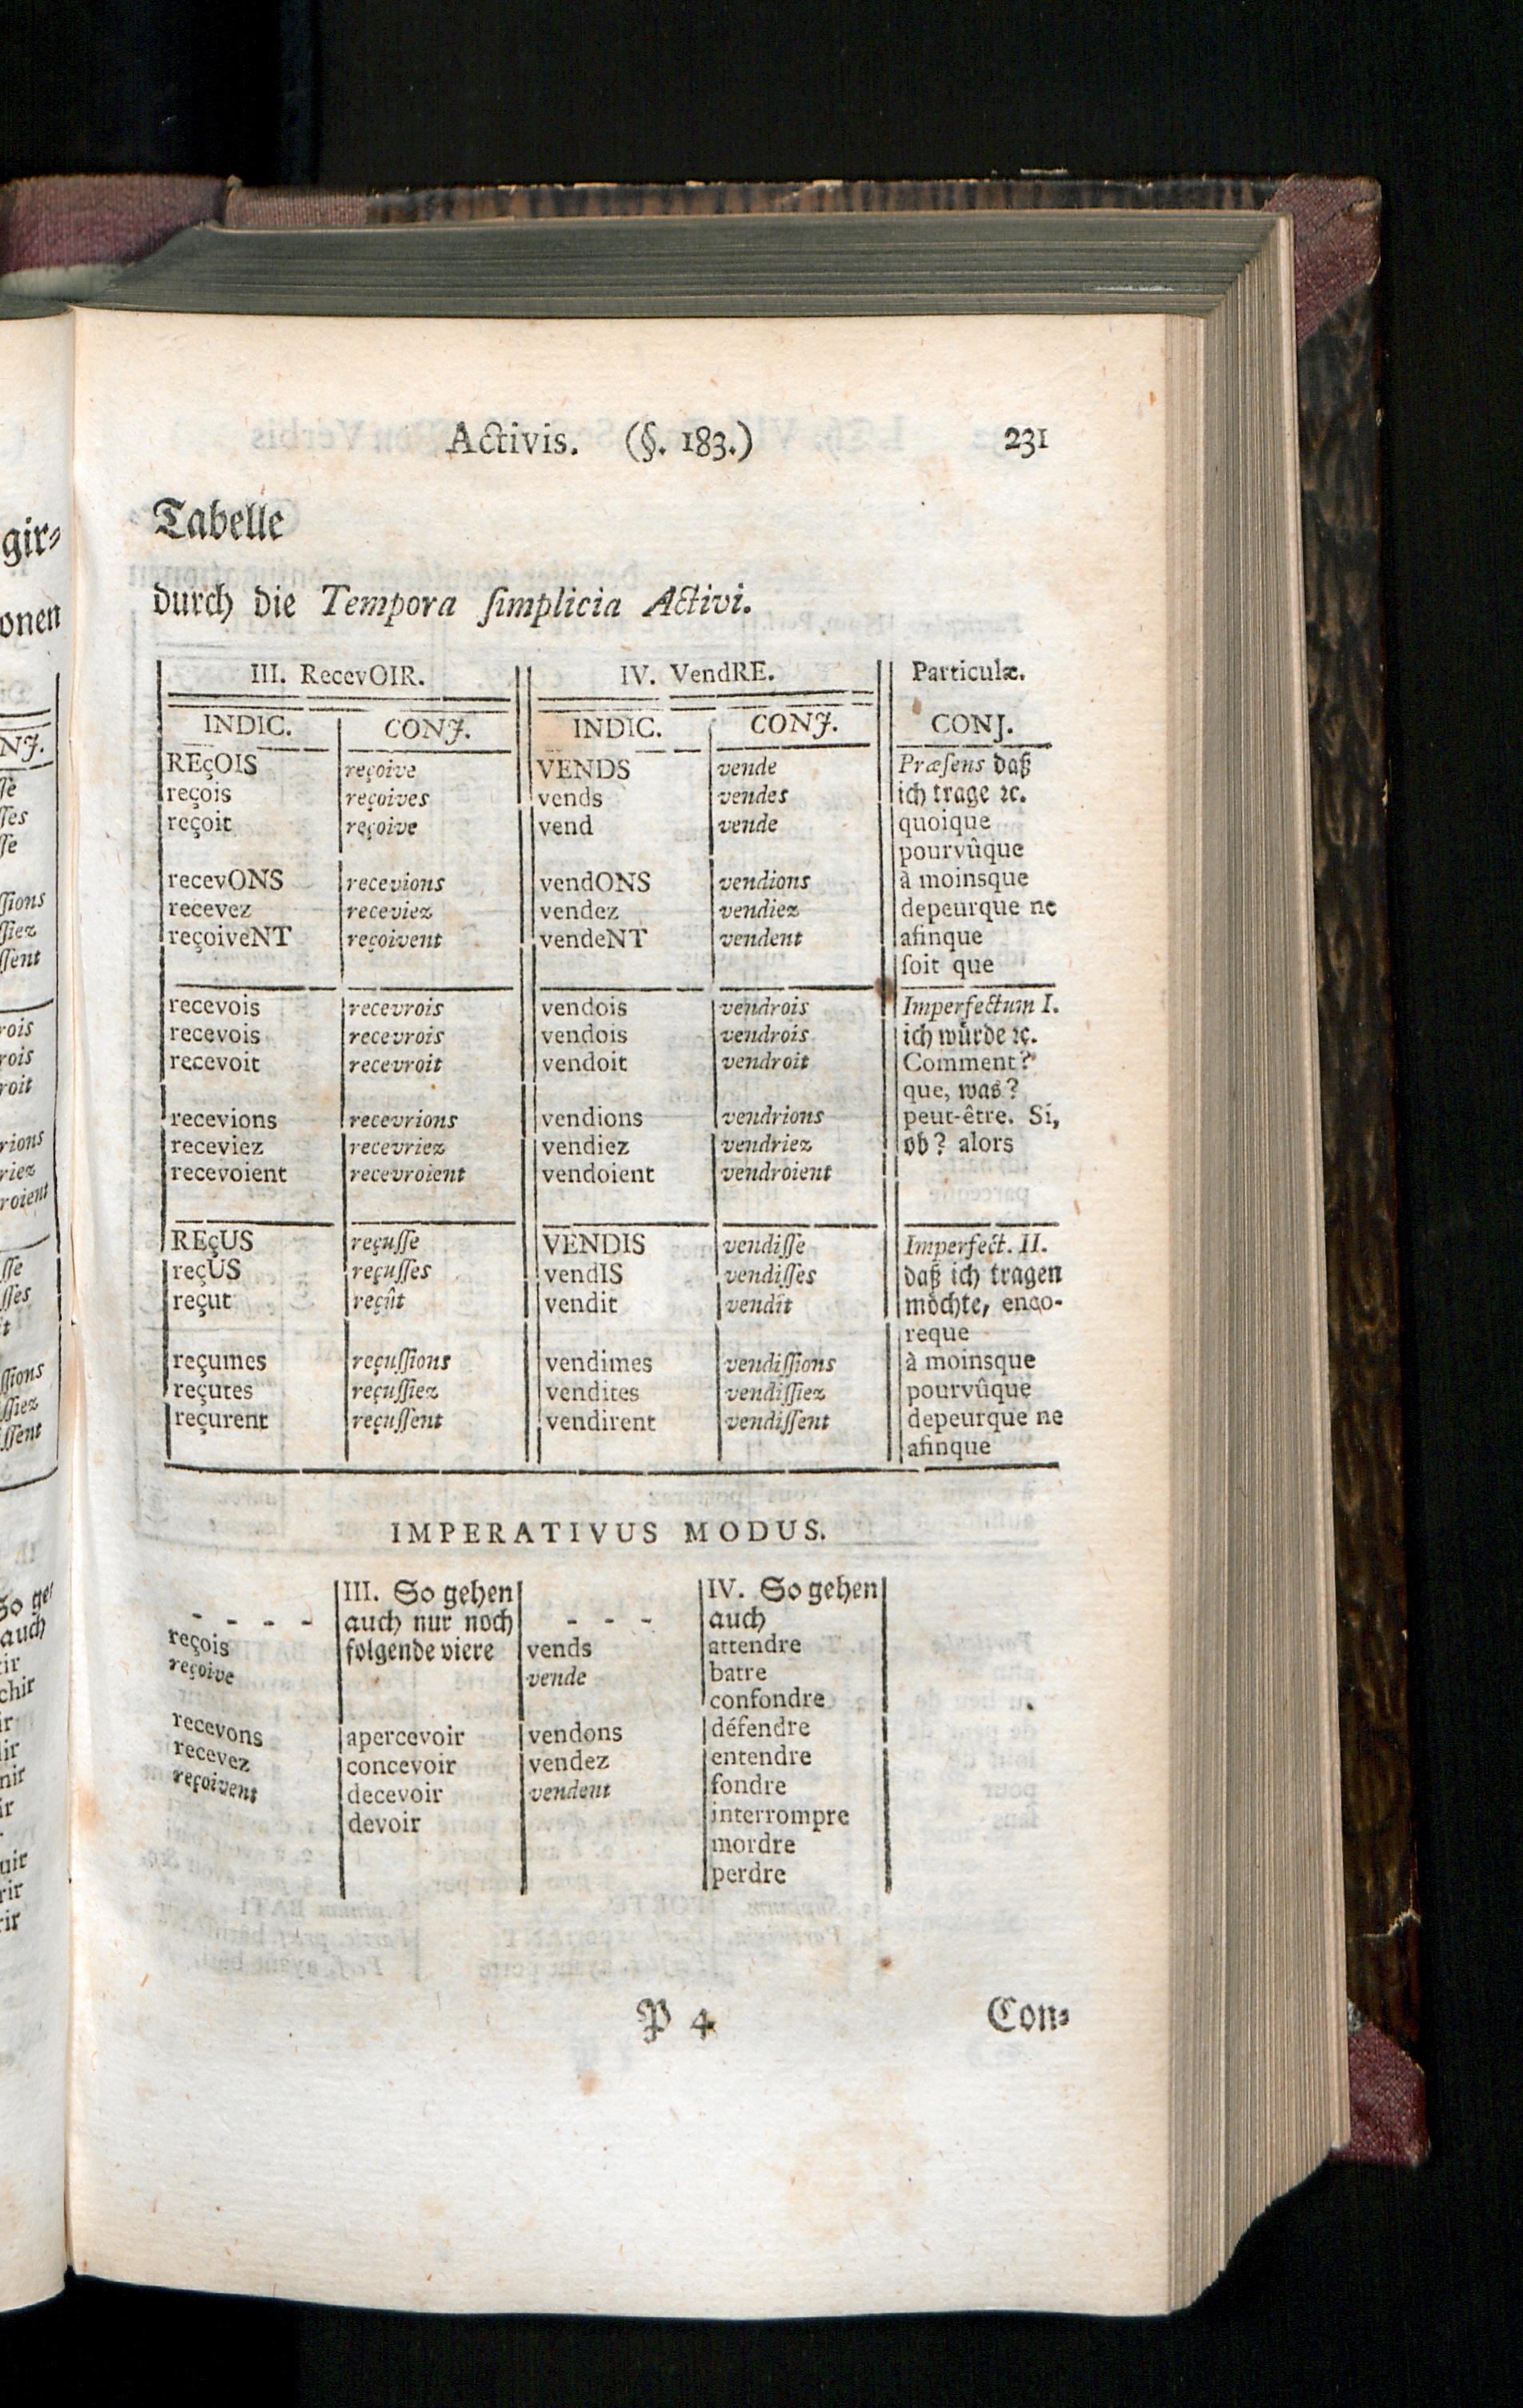 Activis. (§. 183.) 231
Tabelle
durch die Tempora ſimplicia Activi.
III. RecevOIR. IV. VendRE. Particulæ.
INDIC. CONJ. INDIC. CONJ. CONJ.
REçOIS reçoive VENDS vende Præſens daß
reçois reçoives vends vendes ich trage ꝛc.
reçoit reçoive vend vende quoique
pourvûque
recevONS recevions vendONS vendions à moinsque
recevez receviez vendez vendiez depeurque ne
reçoiveNT reçoivent vendeNT vendent afinque
ſoit que
recevois recevrois vendois vendrois Imperfectum I.
recevois recevrois vendois vendrois ich würde ꝛc.
recevoit recevroit vendoit vendroit Comment?
que, was?
recevions recevrions vendions vendrions peut-être. Si,
receviez recevriez vendiez vendriez ob? alors
recevoient recevroient vendoient vendroient
REçUS reçuſſe VENDIS vendiſſe Imperfect. II.
reçUS reçuſſes vendIS vendiſſes daß ich tragen
reçut reçût vendit vendît möchte, enco-
reque
reçumes reçuſſions vendimes vendiſſions à moinsque
reçutes reçuſſiez vendites vendiſſiez pourvûque
reçurent reçuſſent vendirent vendiſſent depeurque ne
afinque
IMPERATIVUS MODUS.
III. So gehen IV. So gehen
- - - - auch nur noch - - - auch
reçois folgende viere vends attendre
reçoive vende batre
confondre
recevons apercevoir vendons défendre
recevez concevoir vendez entendre
reçoivent decevoir vendent fondre
devoir interrompre
mordre
perdre
P 4 Con-